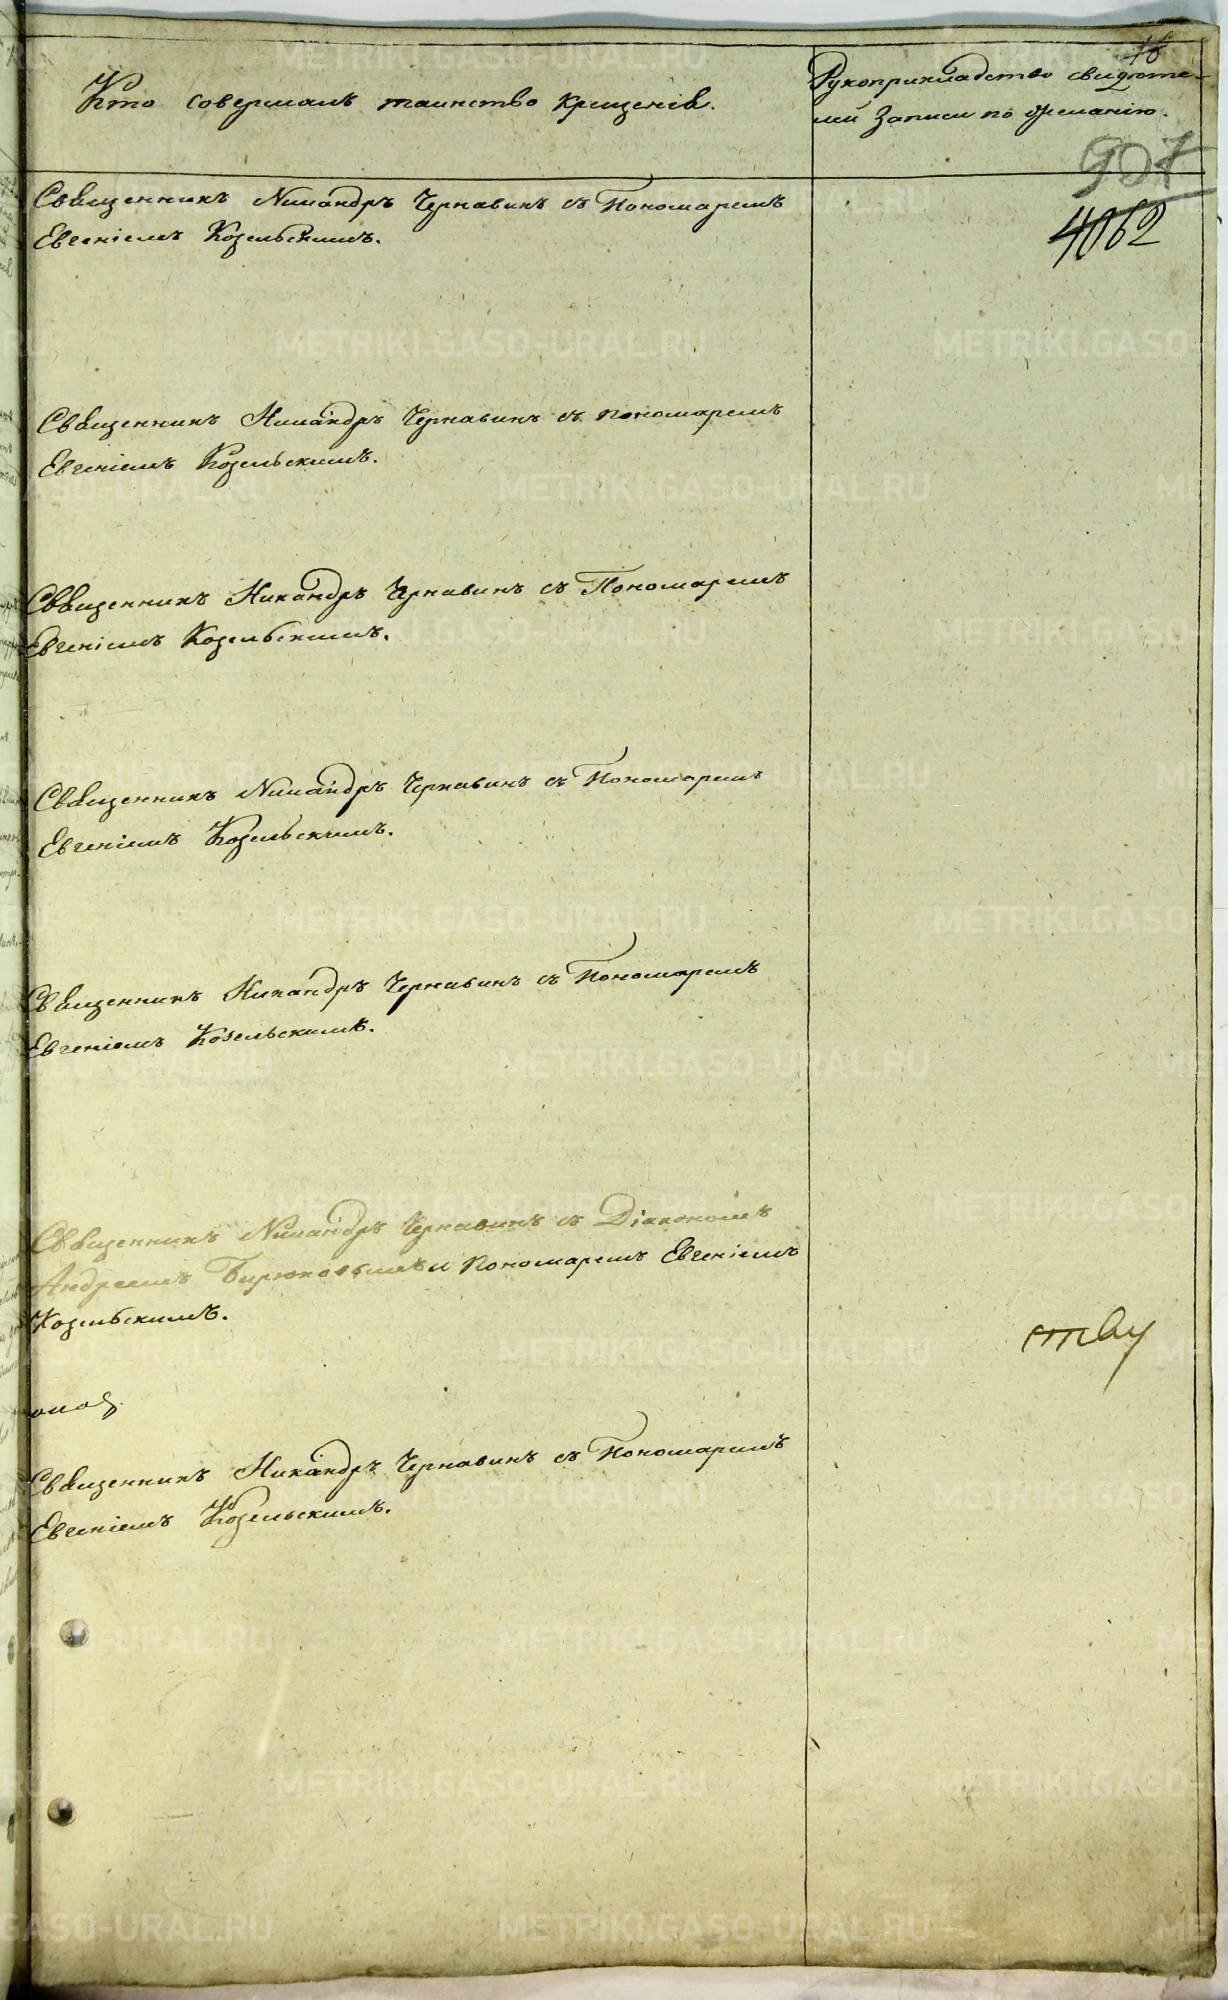 16
Кто совершалъ таинство крещенія.
Рукоприкладство свидѣте-
лей записи по желанію.
907
4062
Священникъ Никандръ Чернавинъ съ Пономаремъ
Евгеніемъ Козельскимъ.
Священникъ Никандръ Чернавинъ съ пономаремъ
Евгеніемъ Козельскимъ.
Священникъ Никандръ Чернавинъ съ Пономаремъ
Евгеніемъ Козельскимъ.
Священникъ Никандръ Чернавинъ съ Пономаремъ
Евгеніемъ Козельскимъ.
Священникъ Никандръ Чернавинъ съ Пономаремъ
Евгеніемъ Козельскимъ.
Священникъ Никандръ Чернавинъ съ Діакономъ
Андреемъ Бирюковымъ и пономаремъ Евгеніемъ
Козельскимъ.
ству
Священникъ Никандръ Чернавинъ съ Пономаремъ
Евгеніемъ Козельскимъ.
METRIKI.GASO-URAL.RU